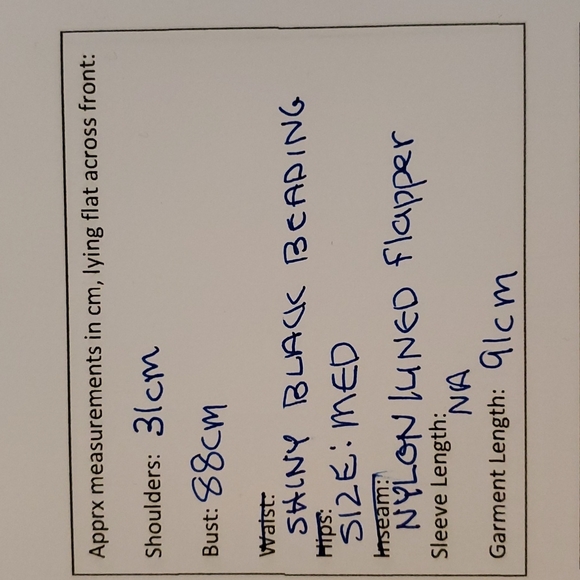 Apprx measurements in cm, lying flat across front:
Shoulders: 31cm
Bust: 88cm
Waist:
SHINY BLACK BEADING
Hips:
SIZE: MED
Inseam:
NYLON LINED flapper
Sleeve Length:
NA
Garment Length: 91cm